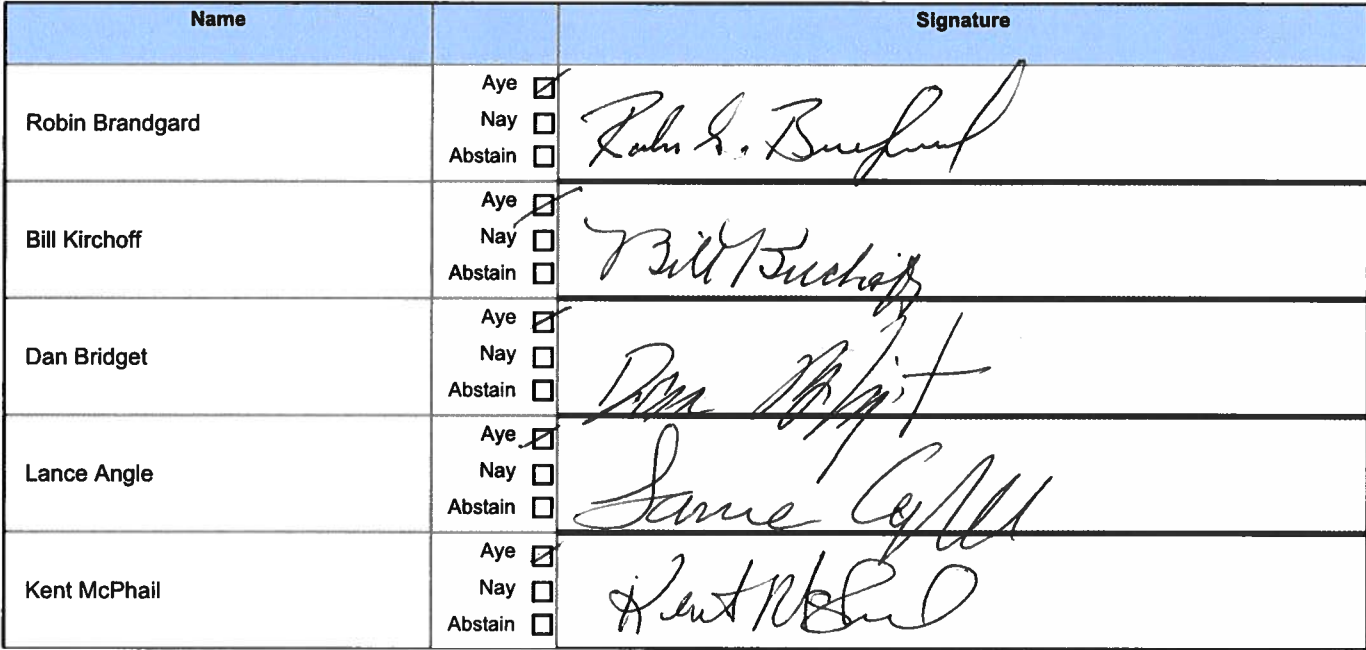 Name Signature
Robin Brandgard
Aye ☑
Nay ☐
Abstain ☐
Bill Kirchoff
Aye ☑
Nay ☐
Abstain ☐
Bill Kirchoff
Dan Bridget
Aye ☑
Nay ☐
Abstain ☐
Dan
Lance Angle
Aye ☑
Nay ☐
Abstain ☐
Lance
Kent McPhail
Aye ☑
Nay ☐
Abstain ☐
Kent